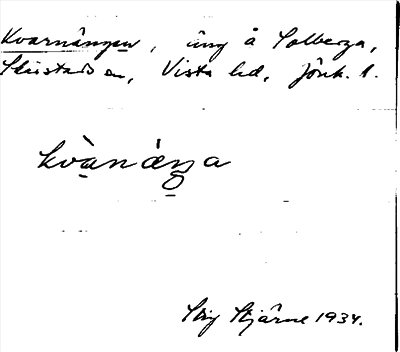 Kvarnängen, äng å Solberga,
Skärstads sn, Vista hd, Jönk. l.
kvànáŋa
Stig Stjärne 1934.